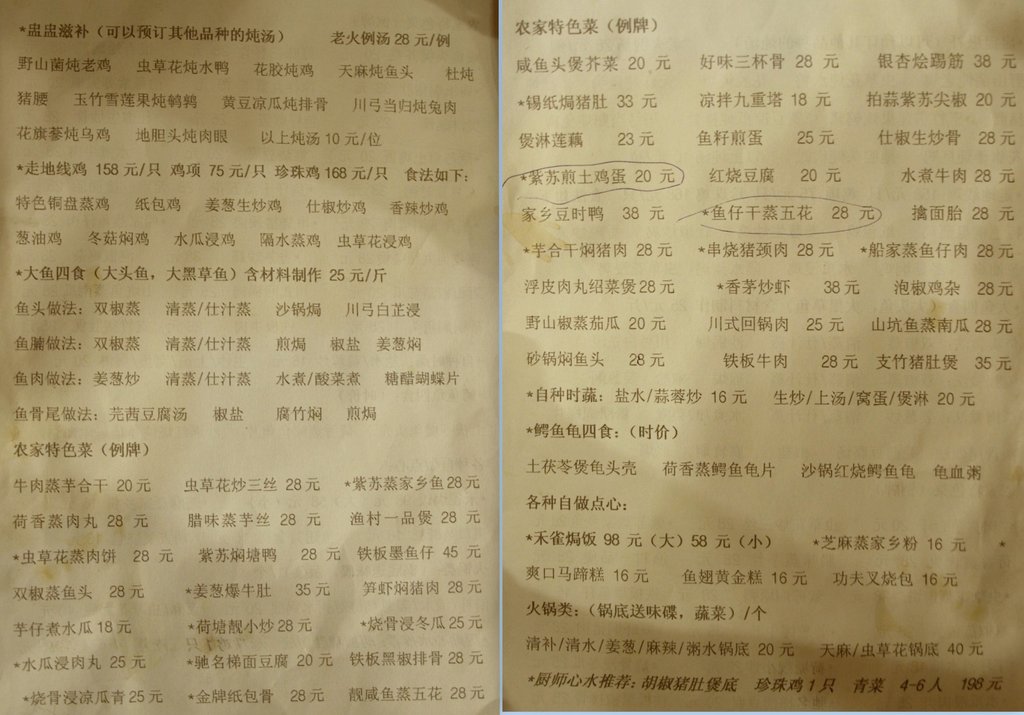 *盅盅滋补（可以预订其他品种的炖汤） 老火例汤 28 元/例
野山菌炖老鸡 虫草花炖水鸭 花胶炖鸡 天麻炖鱼头 杜炖
猪腰 玉竹雪莲果炖鹌鹑 黄豆凉瓜炖排骨 川弓当归炖兔肉
花旗蔘炖乌鸡 地胆头炖肉眼 以上炖汤 10 元/位
*走地线鸡 158 元/只 鸡项 75 元/只 珍珠鸡 168 元/只 食法如下：
特色铜盘蒸鸡 纸包鸡 姜葱生炒鸡 仕椒炒鸡 香辣炒鸡
葱油鸡 冬菇焖鸡 水瓜浸鸡 隔水蒸鸡 虫草花浸鸡
*大鱼四食（大头鱼，大黑草鱼）含材料制作 25 元/斤
鱼头做法：双椒蒸 清蒸/仕汁蒸 沙锅焗 川弓白芷浸
鱼腩做法：双椒蒸 清蒸/仕汁蒸 煎焗 椒盐 姜葱焖
鱼肉做法：姜葱炒 清蒸/仕汁蒸 水煮/酸菜煮 糖醋蝴蝶片
鱼骨尾做法：芫茜豆腐汤 椒盐 腐竹焖 煎焗
农家特色菜（例牌）
牛肉蒸芋合干 20 元 虫草花炒三丝 28 元 *紫苏蒸家乡鱼 28 元
荷香蒸肉丸 28 元 腊味蒸芋丝 28 元 渔村一品煲 28 元
*虫草花蒸肉饼 28 元 紫苏焖塘鸭 28 元 铁板墨鱼仔 45 元
双椒蒸鱼头 28 元 *姜葱爆牛肚 35 元 笋虾焖猪肉 28 元
芋仔煮水瓜 18 元 *荷塘靓小炒 28 元 *烧骨浸冬瓜 25 元
*水瓜浸肉丸 25 元 *驰名梯面豆腐 20 元 铁板黑椒排骨 28 元
*烧骨浸凉瓜青 25 元 *金牌纸包骨 28 元 靓咸鱼蒸五花 28 元
农家特色菜（例牌）
咸鱼头煲芥菜 20 元 好味三杯骨 28 元 银杏烩踢筋 38 元
*锡纸焗猪肚 33 元 凉拌九重塔 18 元 拍蒜紫苏尖椒 20 元
煲淋莲藕 23 元 鱼籽煎蛋 25 元 仕椒生炒骨 28 元
*紫苏煎土鸡蛋 20 元 红烧豆腐 20 元 水煮牛肉 28 元
家乡豆豉鸭 38 元 *鱼仔干蒸五花 28 元 擒面胎 28 元
*芋合干焖猪肉 28 元 *串烧猪颈肉 28 元 *船家蒸鱼仔肉 28 元
浮皮肉丸绍菜煲 28 元 *香茅炒虾 38 元 泡椒鸡杂 28 元
野山椒蒸茄瓜 20 元 川式回锅肉 25 元 山坑鱼蒸南瓜 28 元
砂锅焖鱼头 28 元 铁板牛肉 28 元 支竹猪肚煲 35 元
*自种时蔬：盐水/蒜蓉炒 16 元 生炒/上汤/窝蛋/煲淋 20 元
*鳄鱼龟四食：（时价）
土茯苓煲龟头壳 荷香蒸鳄鱼龟片 沙锅红烧鳄鱼龟 龟血粥
各种自做点心：
*禾雀焗饭 98 元（大）58 元（小） *芝麻蒸家乡粉 16 元 *
爽口马蹄糕 16 元 鱼翅黄金糕 16 元 功夫叉烧包 16 元
火锅类：（锅底送味碟，蔬菜）/个
清补/清水/姜葱/麻辣/粥水锅底 20 元 天麻/虫草花锅底 40 元
*厨师心水推荐：胡椒猪肚煲底 珍珠鸡 1 只 青菜 4-6 人 198 元